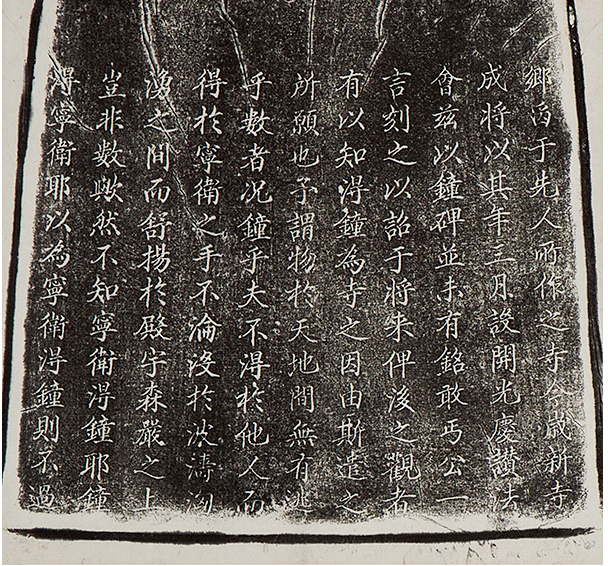 鄉酉于先人所作之寺今歲新寺
成将以其年三月設開光慶讚法
會茲以鐘碑並未有銘敢丐公一
言刻之以詔于将来俾後之觀者
有以知淂鐘為寺之因由斯遣之
所願也予謂物於天地間無有逃
乎數者况鐘乎夫不淂於他人而
得於寧衛之手不淪没於波濤洶
湧之間而舒揚於殿宇森嚴之上
豈非數歟然不知寧衛淂鐘耶鐘
淂寧衛耶以為寧衛淂鐘則不過